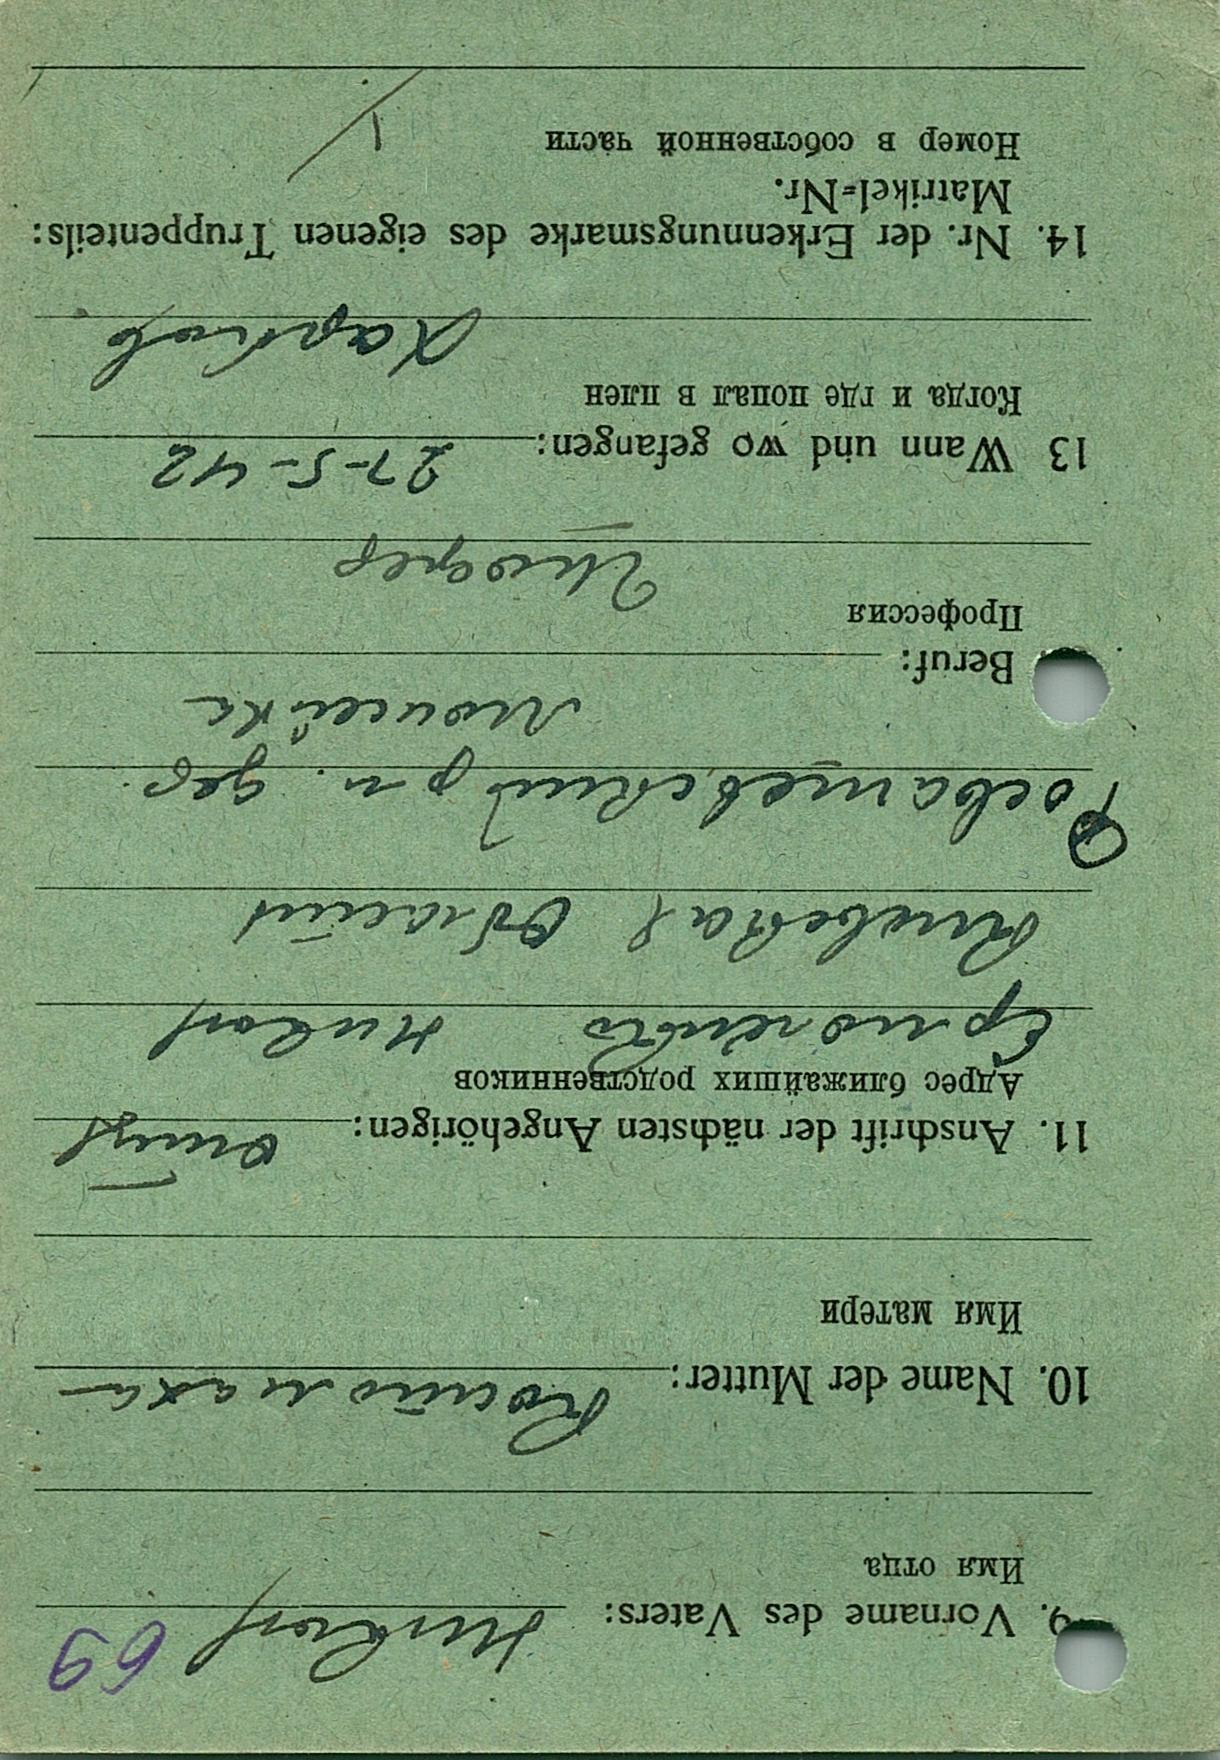 69
9. Vorname des Vaters:
Имя отца
10. Name der Mutter:
Имя матери
11. Anschrift der nächsten Angehörigen: отец
Адрес ближайших родственников
Ермоленко
Киевская Область
р н. дер
Моисейка
Beruf:
Профессия
Шофер
13 Wann und wo gefangen: 27-5-42
Когда и где попал в плен
Харков
14. Nr. der Erkennungsmarke des eigenen Truppenteils:
Matrikel-Nr.
Номер в собственной части